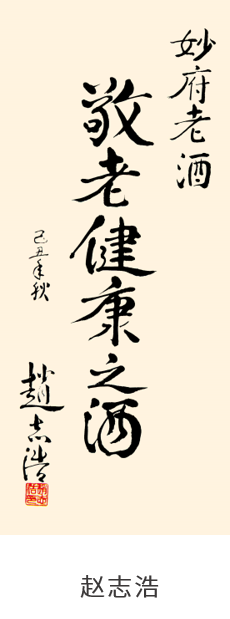 妙府老酒
敬老健康之酒
己丑年秋
趙志浩
赵志浩